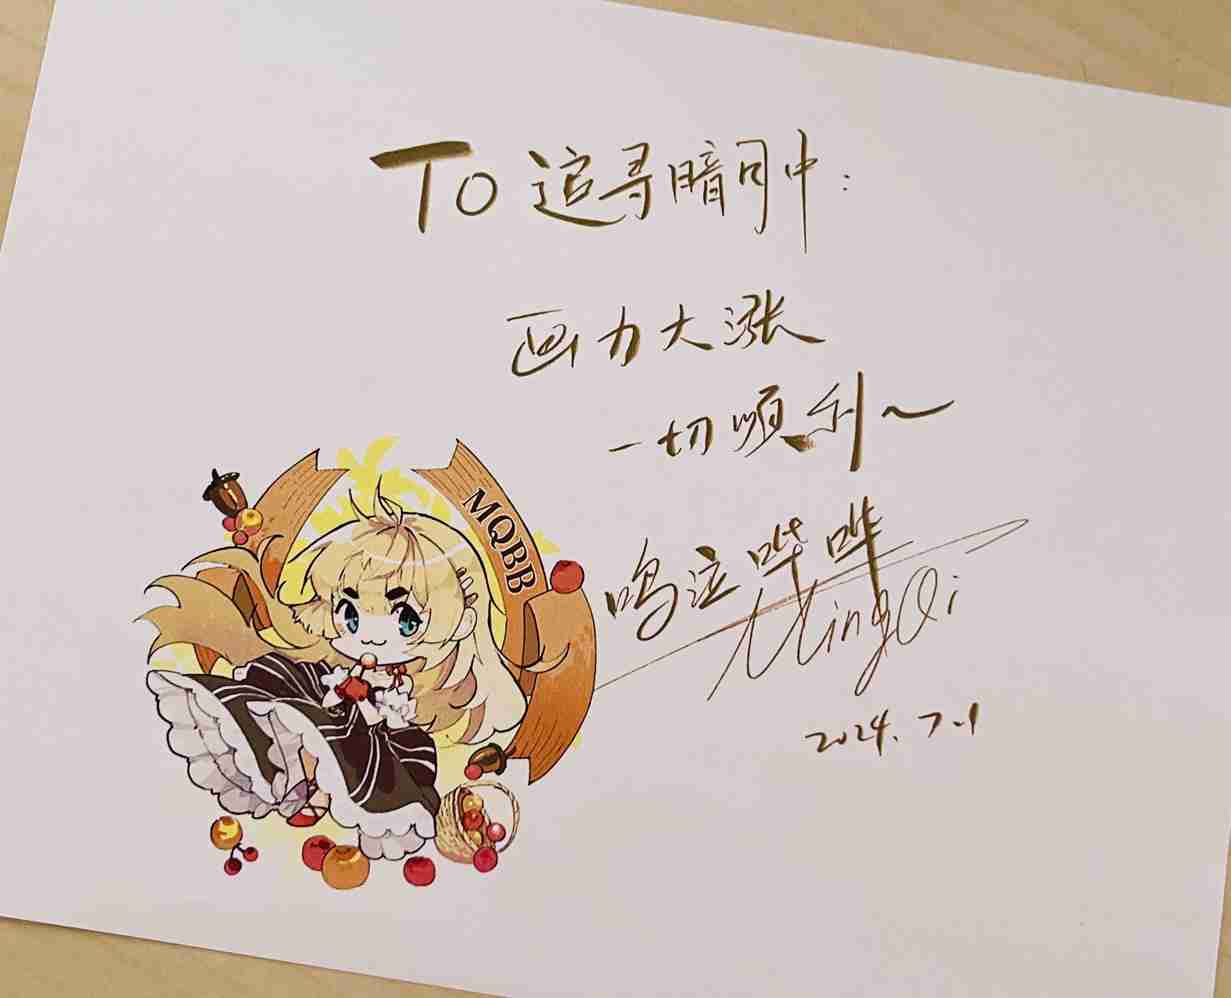 To 追寻暗司中:
画力大涨
一切顺利~
MQBB
鸣泣哔哔
MingQi
2024.7.1